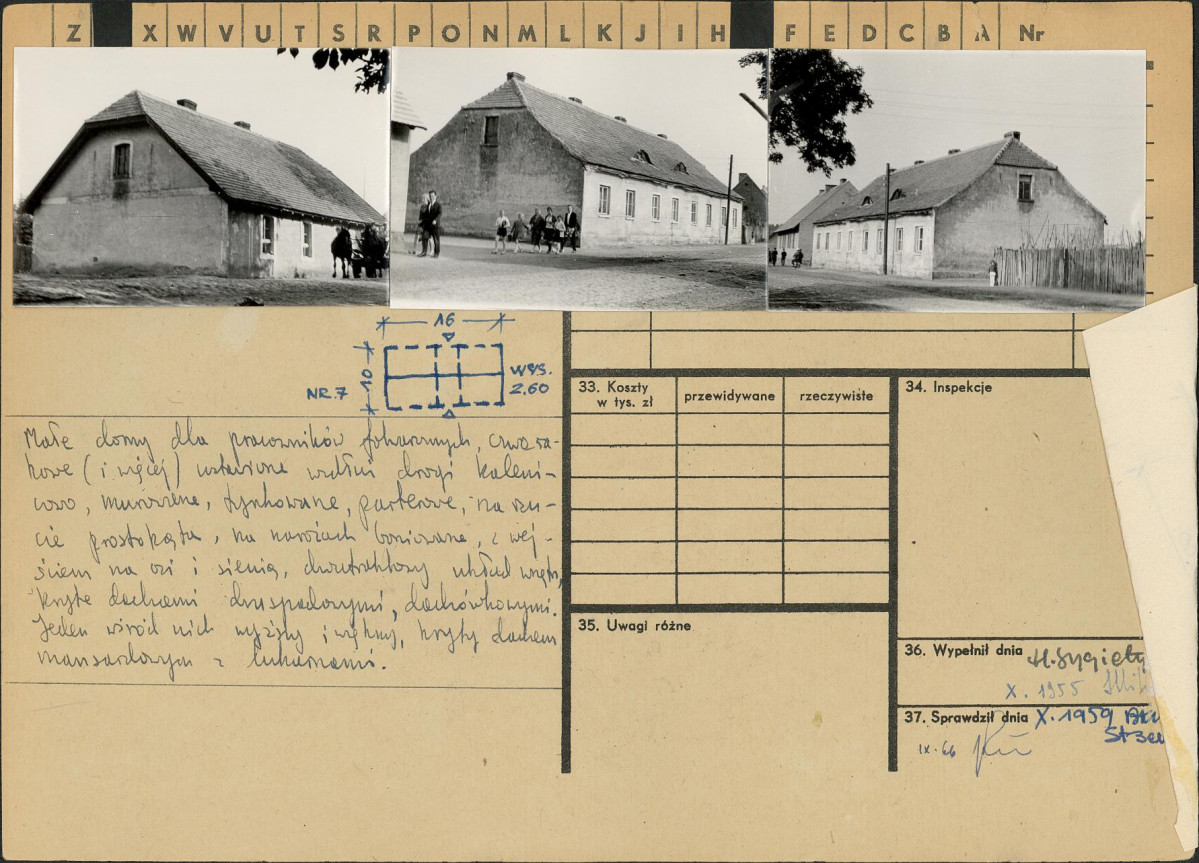 Z X W V U T S R P O N M L K J I H F E D C B A Nr
16
10
NR.7
WYS.
2.60
Małe domy dla pracowników folwarcznych, czwora-
kowe (i więcej) ustawione wzdłuż drogi kaleni-
murowane, tynkowane, parterowe, na rzu-
cie prostokąta, na narożach boniowane, z wej-
ściem na osi i sienią, dwutraktowy układ wnętrz,
kryte dachami dwuspadowymi, dachówkowymi.
Jeden wśród nich wyższy i większy, kryty dachem
mansardowym z lukarnami.
33. Koszty
w tys. zł
przewidywane
rzeczywiste
34. Inspekcje
35. Uwagi różne
36. Wypełnił dnia H. Sygiety
X. 1955
37. Sprawdził dnia X. 1959
IX. 66